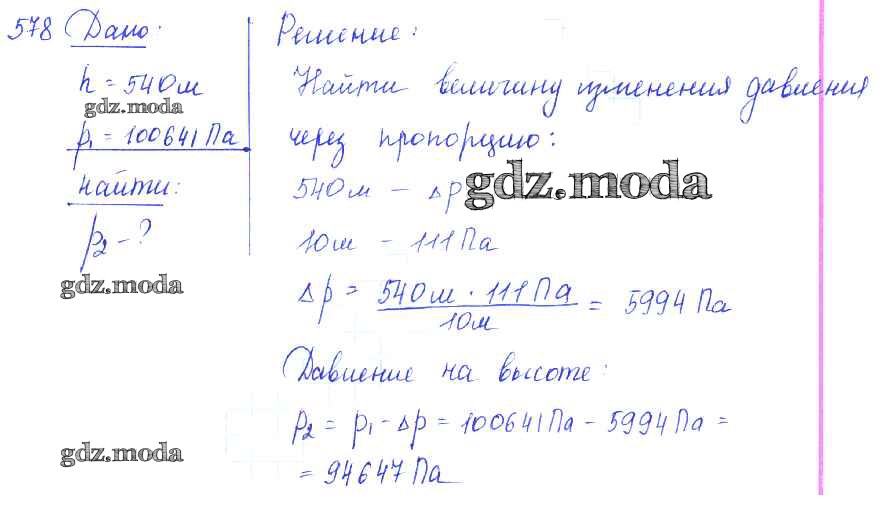 578 Дано:
h = 540м
gdz.moda
p₁ = 100641 Па
найти:
p₂ - ?
gdz.moda
gdz.moda
Решение:
Найти величину изменения давления
через пропорцию:
540м – Δp
gdz.moda
10м – 111 Па
Δp = 540м · 111 Па / 10м = 5994 Па
Давление на высоте:
p₂ = p₁ - Δp = 100641 Па - 5994 Па =
= 94647 Па